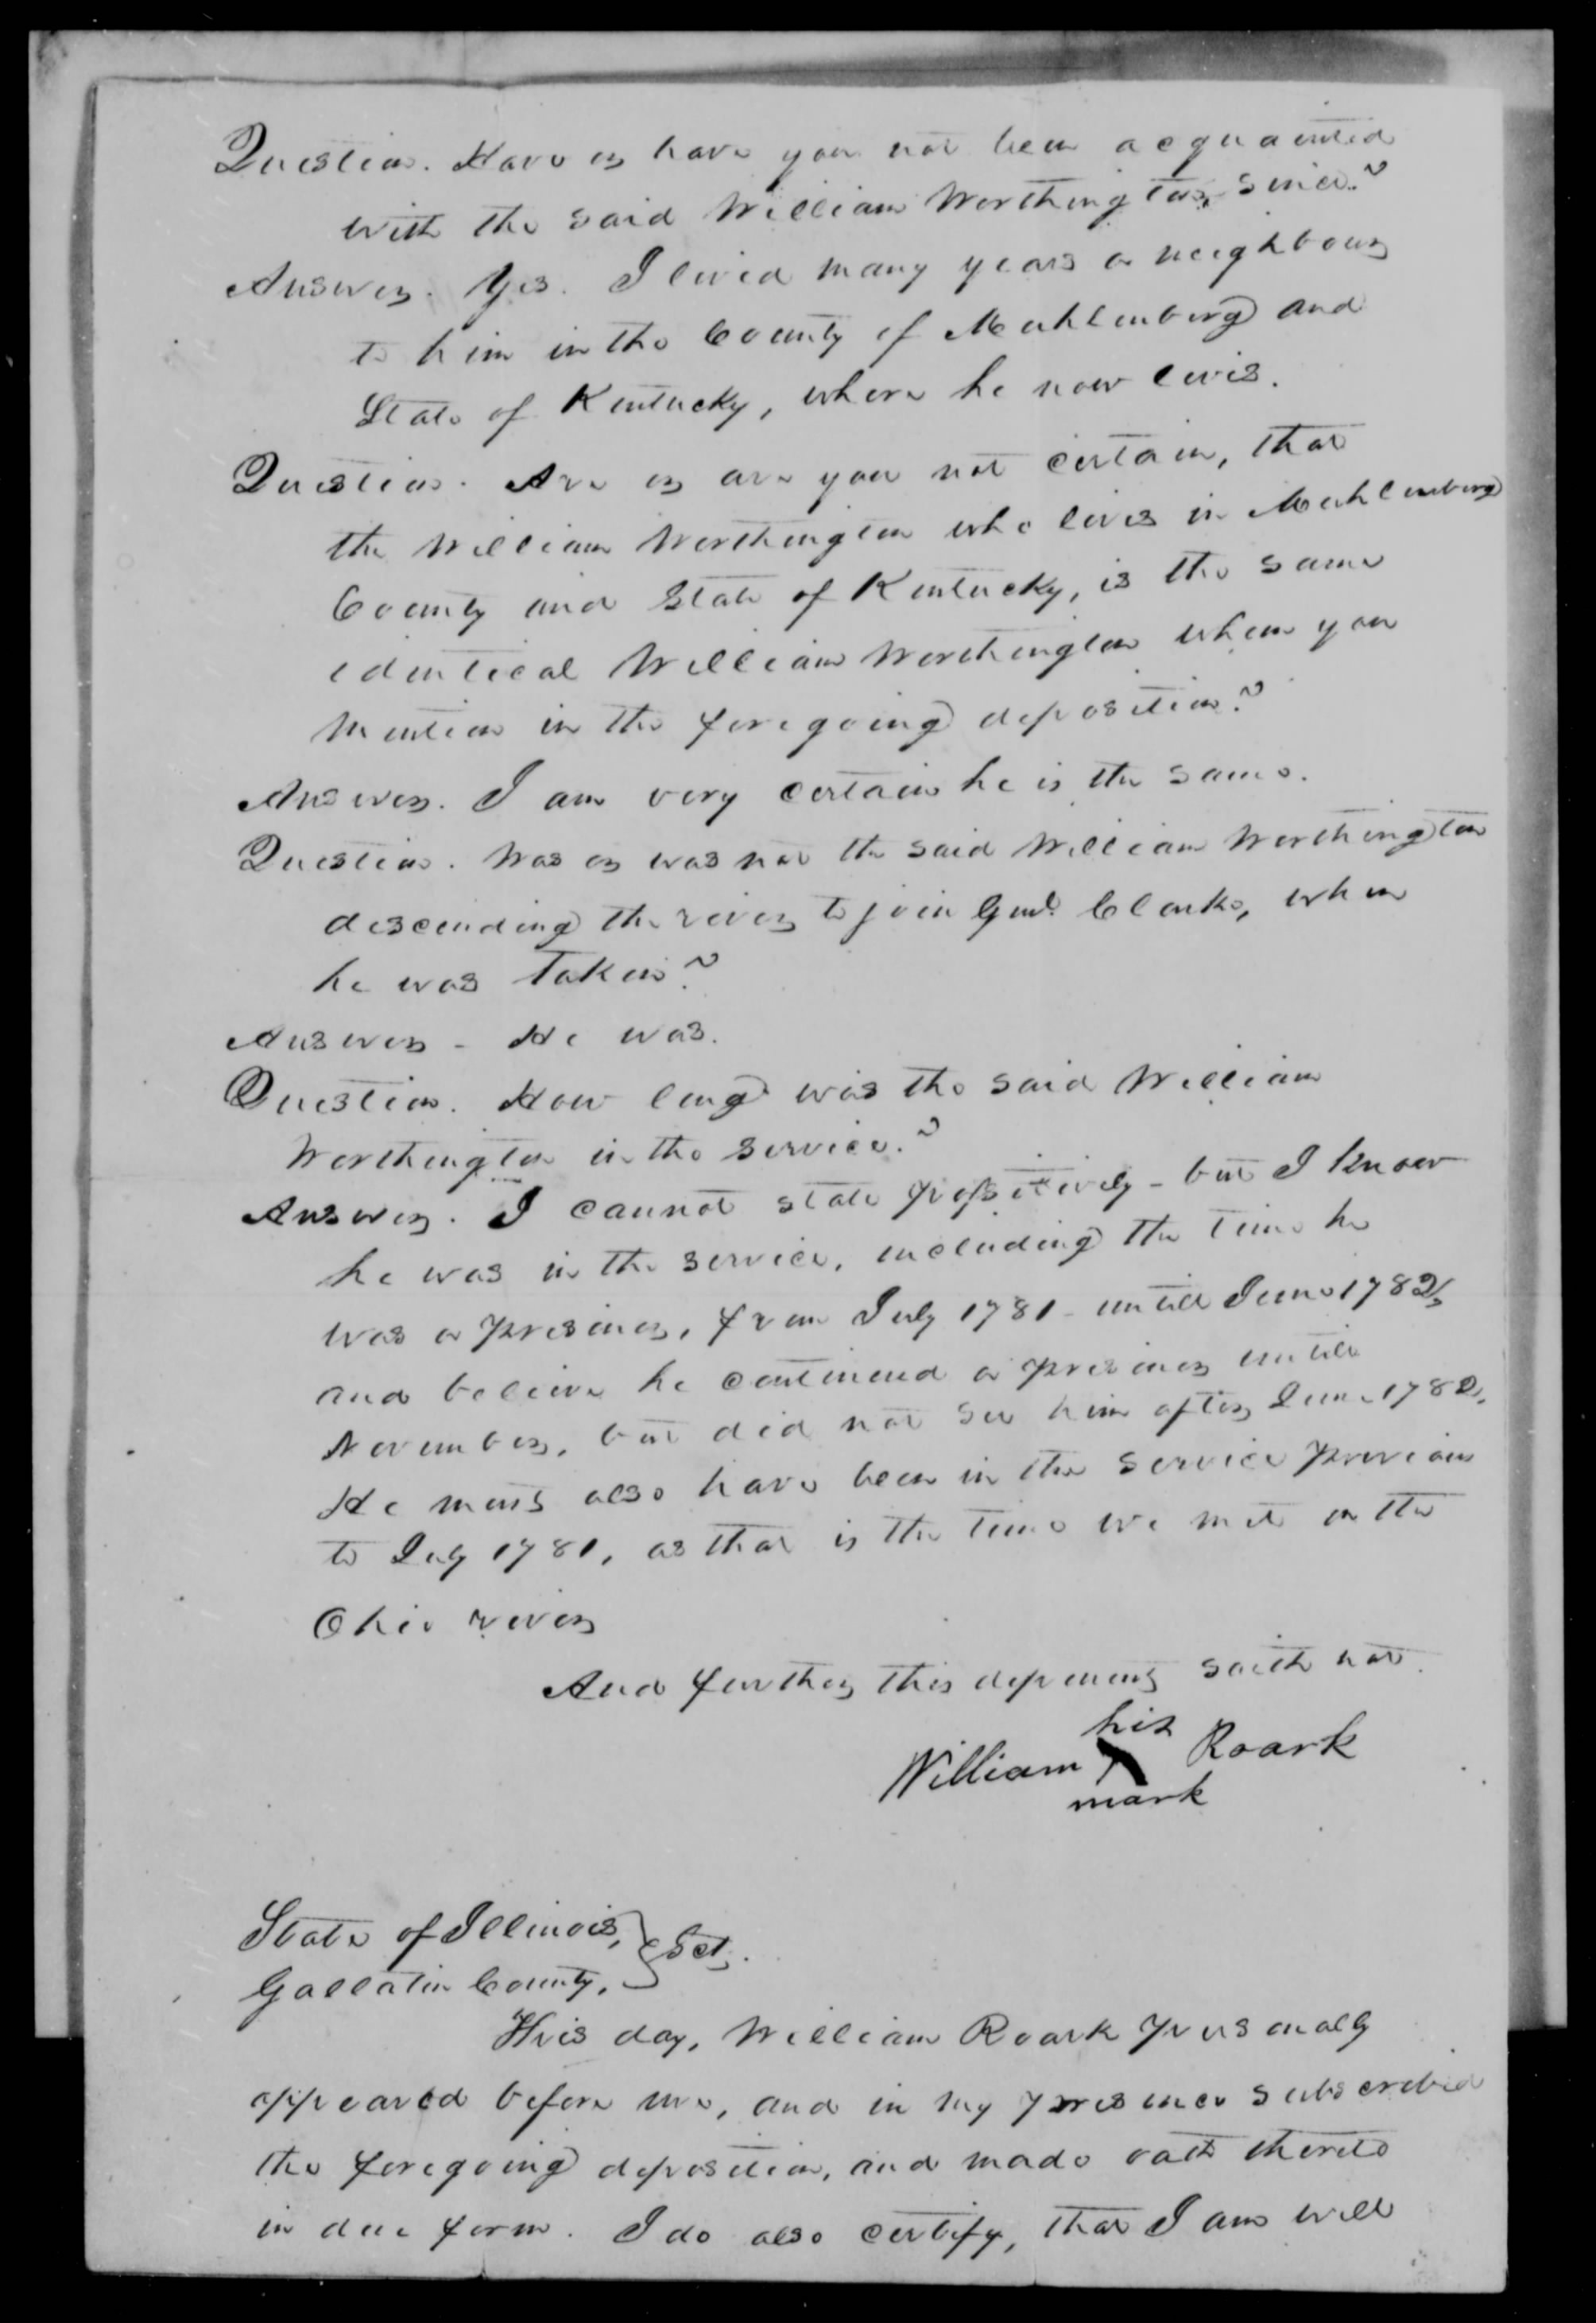 Question. Have or have you not been acquainted
with the said William Worthington, since?
Answer. Yes. I lived many years a neighbour
to him in the County of Muhlenberg and
State of Kentucky, where he now lives.
Question. Are or are you not certain, that
the William Worthington who lives in Muhlenberg
County and State of Kentucky, is the same
identical William Worthington whom you
mention in the foregoing deposition?
Answer. I am very certain he is the same.
Question. Was or was not the said William Worthington
descending the river to join Genl. Clarke, when
he was taken?
Answer - He was.
Question. How long was the said William
Worthington in the service.?
Answer. I cannot state possitively - but I know
he was in the service, including the time he
was a prisoner, from July 1781 - untill June 1782,
and believe he continued a prisoner untill
November, but did not see him after June 1782.
He must also have been in the service previous
to July 1781, as that is the time we met on the
Ohio river
And further this deponent saith not.
his
William X Roark
mark
State of Illinois, } Sct.
Gallatin County,
This day, William Roark personally
appeared before me, and in my presence subscribed
the foregoing deposition, and made oath thereto
in due form. I do also certify, that I am well